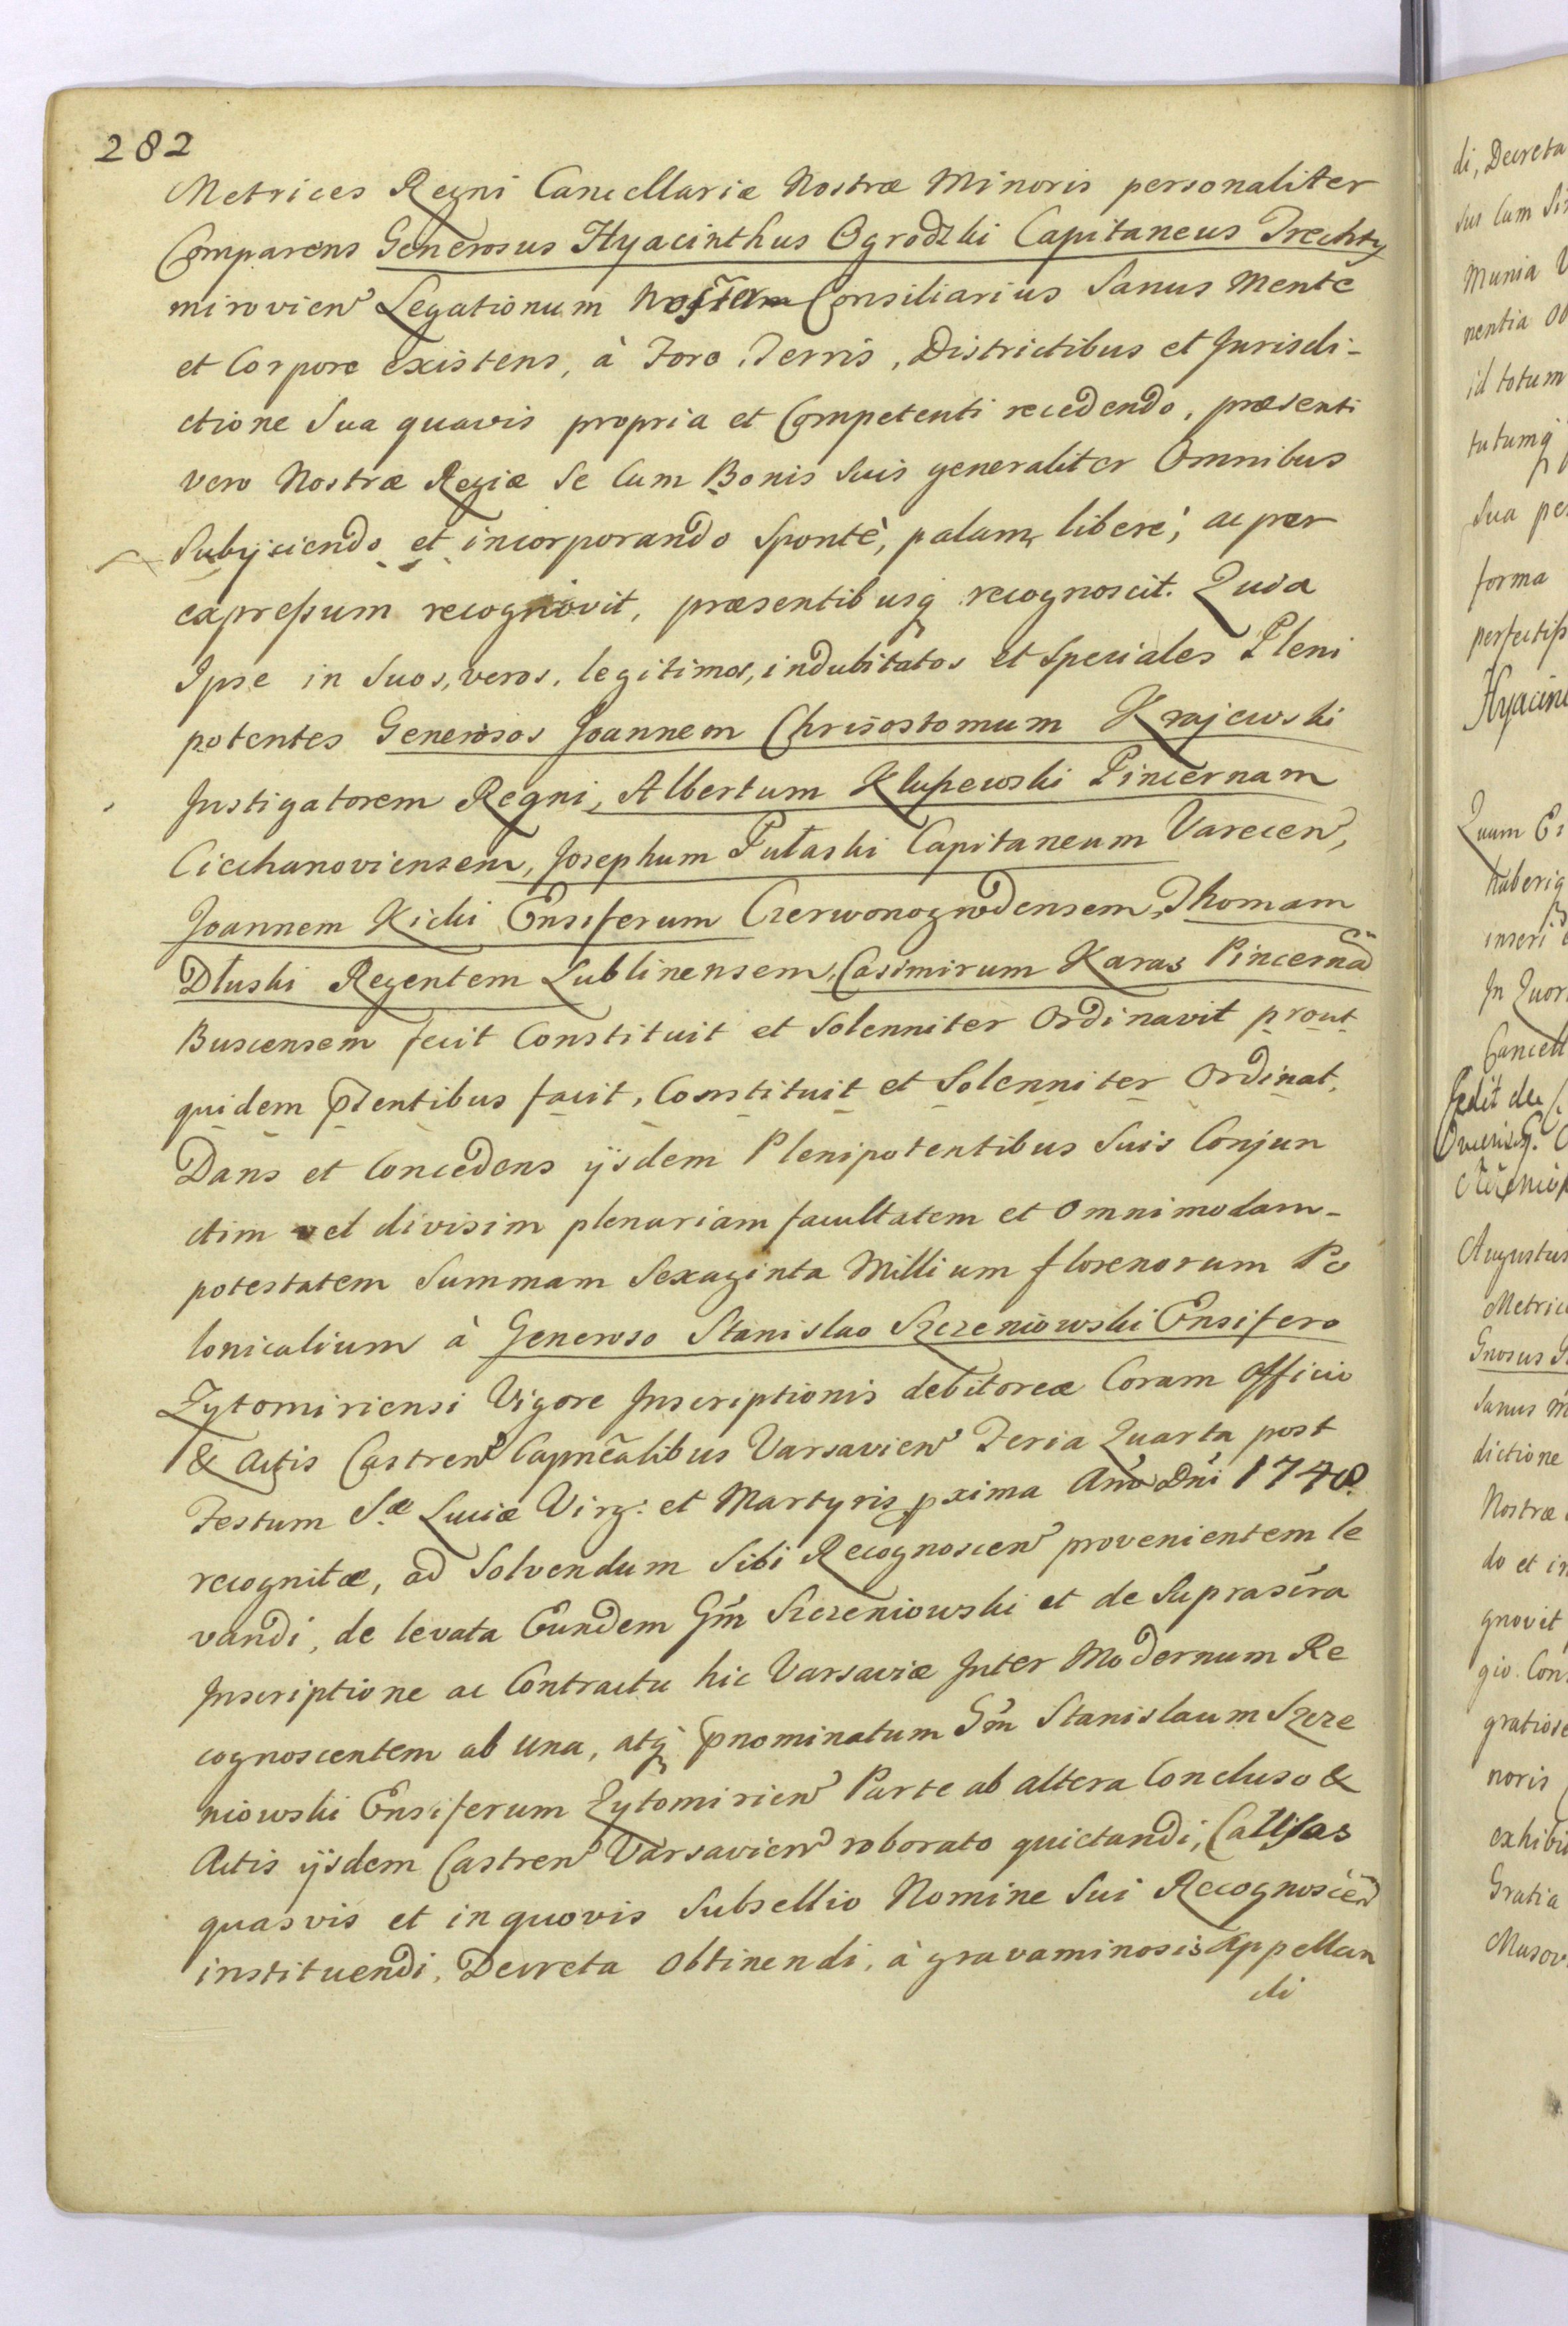 282
Metrices Regni Cancellariæ Nostræ Minoris personaliter
Comparens Generosus Hyacinthus Ogrodzki Capitaneus Trechty
mirovien Legationum Nostrãm Consiliarius Sanus Mente
et Corpore existens, à Foro, Terris, Districtibus et Jurisdi-
ctione Sua quavis propria et Competenti recedendo, præsenti
vero Nostræ Regiæ Se Cum Bonis Suis generaliter Omnibus
Subijciendo et incorporando Spontè, palam, liberè, ac per
expreßum recognovit, præsentibusq recognoscit. Quia
Ipse in Suos, veros, legitimos, indubitatos et Speciales Pleni
potentes Generosos Joannem Chrisostomum Krajewski
Instigatorem Regni, Albertum Klußewski Pincernam
Ciechanoviensem, Josephum Pułaski Capitaneum Varecen,
Joannem Kicki Ensiferum Czerwonogrodensem, Thomam
Dłuski Regentem Lublinensem, Casimirum Karas Pincernã
Buscensem fecit Constituit et Solenniter Ordinavit prout
quidem p̃ntibus facit, Constituit et Solenniter Ordinat,
Dans et Concedens ijsdem Plenipotentibus Suis Conjun
ctim vel divisim plenariam facultatem et Omnimodam-
potestatem Summam Sexaginta Millium florenorum Po
lonicalium à Generoso Stanislao Szczeniowski Ensifero
Zytomiriensi Vigore Inscriptionis debitoreæ Coram Officio
& Actis Castren Capnẽalibus Varsavien Feria Quarta post
Festum S.æ Luciæ Virg: et Martyris pxima Anõ Dni 1748
recognitæ, ad Solvendum Sibi Recognoscen provenientem le
vandi, de levata Eundem Gm̃ Szczeniowski et de Suprascra
Inscriptione ac Contractu hic Varsaviæ Inter Modernum Re
cognoscentem ab una, atq pnominatum Gm̃ Stanislaum Szcze
niowski Ensiferum Zytomirien Parte ab altera Concluso &
Actis ijsdem Castren Varsavien roborato quietandi, Causas
quasvis et in quovis Subsellio Nomine Sui Recognoscen
instituendi, Decreta Obtinendi, à gravaminosis Appellan
di
di, Decreta
sus Cum
munia
nentia
id totum
tutumq
Sua
forma
perfectiß
Quum
haberi
inseri
In Quor
Cancell
Augustus
Metric
Gnosus
Sanus
dictione
Nostræ
do et in
gnovit
gio. Con
gratiose
noris
exhibi
Gratia
Masov